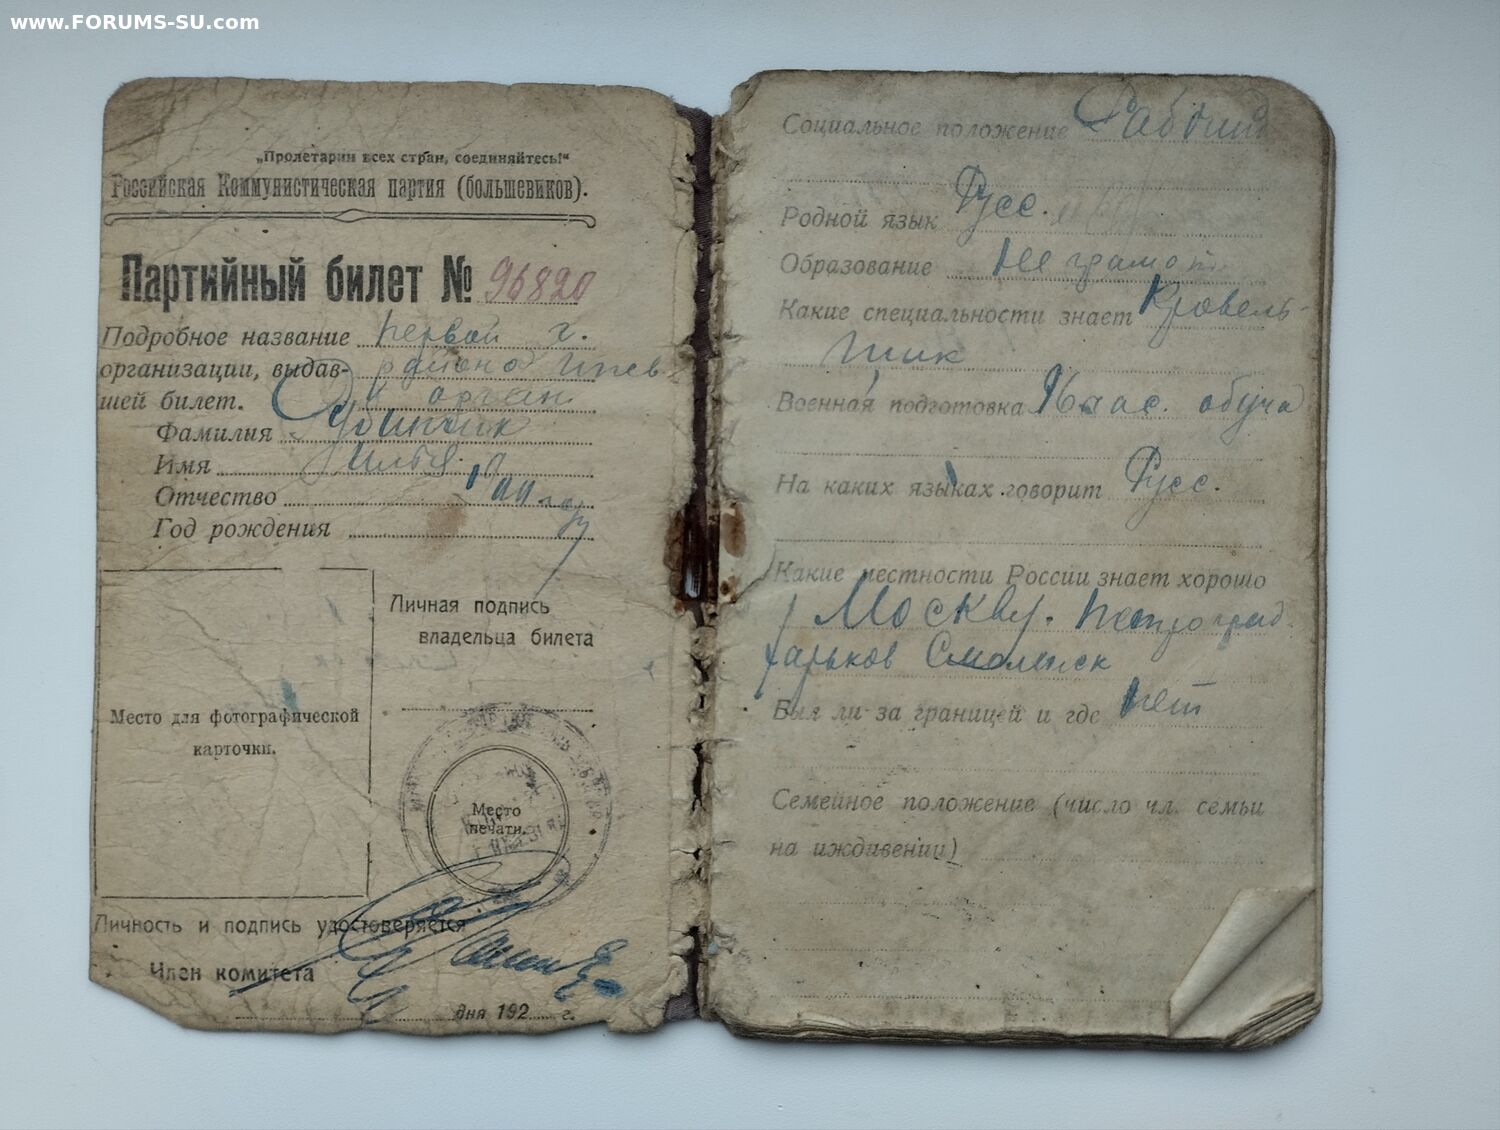 www.FORUMS-SU.com
„Пролетарии всех стран, соединяйтесь!“
Российская Коммунистическая партия (большевиков).
Партийный билет № 96820
Подробное название первой г.
организации, выдав- района
шей билет. орган
Фамилия
Имя Илья
Отчество
Год рождения
Личная подпись
владельца билета
Место для фотографической
карточки.
Место
печати.
Личность и подпись удостоверяется
Член комитета
дня 192 г.
Социальное положение Рабочий
Родной язык Русс.
Образование Не грамот
Какие специальности знает Кровель-
щик
Военная подготовка обуча
На каких языках говорит Русс.
Какие местности России знает хорошо
Москву. Петроград
Харьков Смоленск
Был ли за границей и где нет
Семейное положение (число чл. семьи
на иждивении)